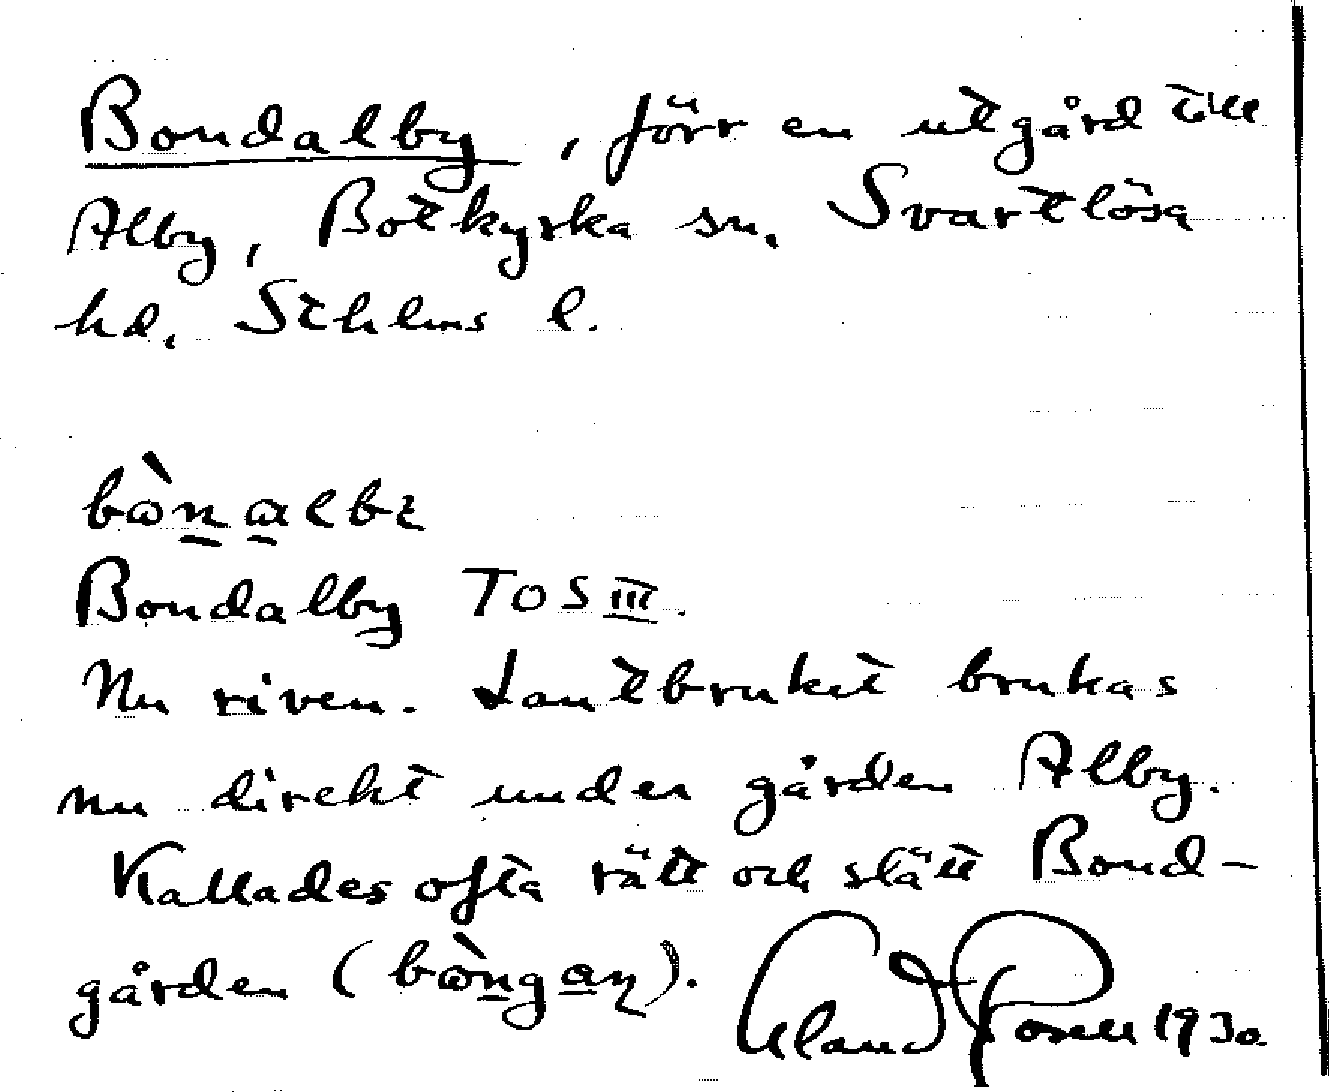 Bondalby, förr en utgård till
Alby, Botkyrka sn. Svartlösa
hd. Sthlms l.
bònalbı
Bondalby TOS III.
Nu riven. Lantbruket brukas
nu direkt under gården Alby.
Kallades ofta rätt och slätt Bond-
gården (bòngaɳ).
Eland Rosell 1930